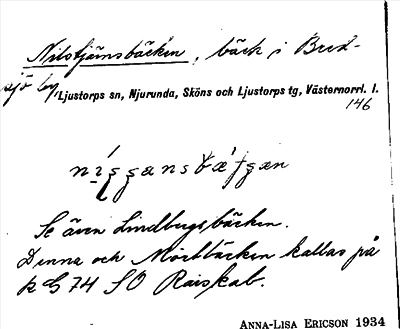 Nilstjärnsbäcken, bäck i Bred-
sjö by, Ljustorps sn, Njurunda, Sköns och Ljustorps tg, Västernorrl. l.
146
Se även Lindbergsbäcken.
Denna och Mörtbäcken kallas på
k G 74 SO Raiskab.
ANNA-LISA ERICSON 1934